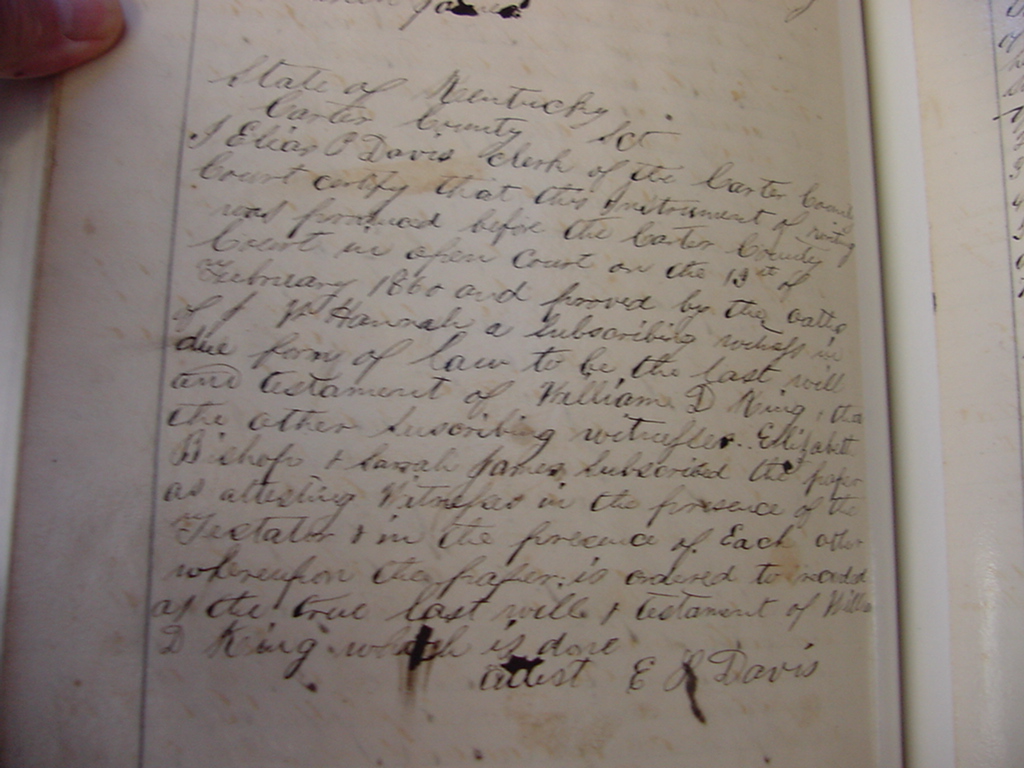 State of Kentucky
Carter County Sct
I Elias P Davis Clerk of the Carter County
Court certify that this Instrument of writing
was produced before the Carter County
Court in open Court on the 13th of
February 1860 and proved by the oath
of J Hannah a Subscribing witness in
due form of law to be the last will
and testament of William D King & that
the other Suscribing witnesses Elizabeth
Bishop & Sarah James Subscribed the paper
as attesting Witnesses in the presence of the
Testator & in the presence of Each other
whereupon the paper is ordered to record
as the true last will & testament of William
D King which is done
attest E P Davis